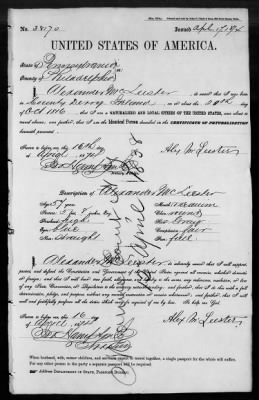 No. 38170
Issued April 17 1874
UNITED STATES OF AMERICA.
State of Pennsylvania
County of Philadelphia
I Alexander McLeester
do swear that I was born in
County Derry Ireland on or about the 30th day
of Oct 1816 that I am a NATURALIZED AND LOYAL CITIZEN OF THE UNITED STATES, and about to travel
abroad; and further, that I am the identical Person described in the CERTIFICATE OF NATURALIZATION
herewith presented.
Sworn to before me, this 16th
day of April 1874
Alex McLeester
Notary Public
Description of Alexander McLeester
Age: 57 years
Mouth: medium
Stature: 5 f 8 inches, Eng.
Chin: round
Forehead: high
Hair: gray
Eyes: blue
Complexion: fair
Nose: straight
Face: full
I, Alexander McLeester do solemnly swear that I will support,
protect, and defend the Constitution and Government of the United States against all enemies, whether domestic
or foreign; and that I will bear true faith, allegiance, and loyalty to the same, any ordinance, resolution, or law
of any State Convention, or Legislature to the contrary notwithstanding; and further, that I do this
with a full determination, pledge, and purpose, without any mental reservation or evasion whatsoever; and further, that I will
well and faithfully perform all the duties which may be required of me by law: So help me God.
Sworn to before me, this 16
day of April 1874
Alex McLeester
When husband, wife, minor children, and servants expect to travel together, a single passport for the whole will suffice.
For any other person in the party a separate passport will be required.
Address DEPARTMENT OF STATE, PASSPORT
April 1838